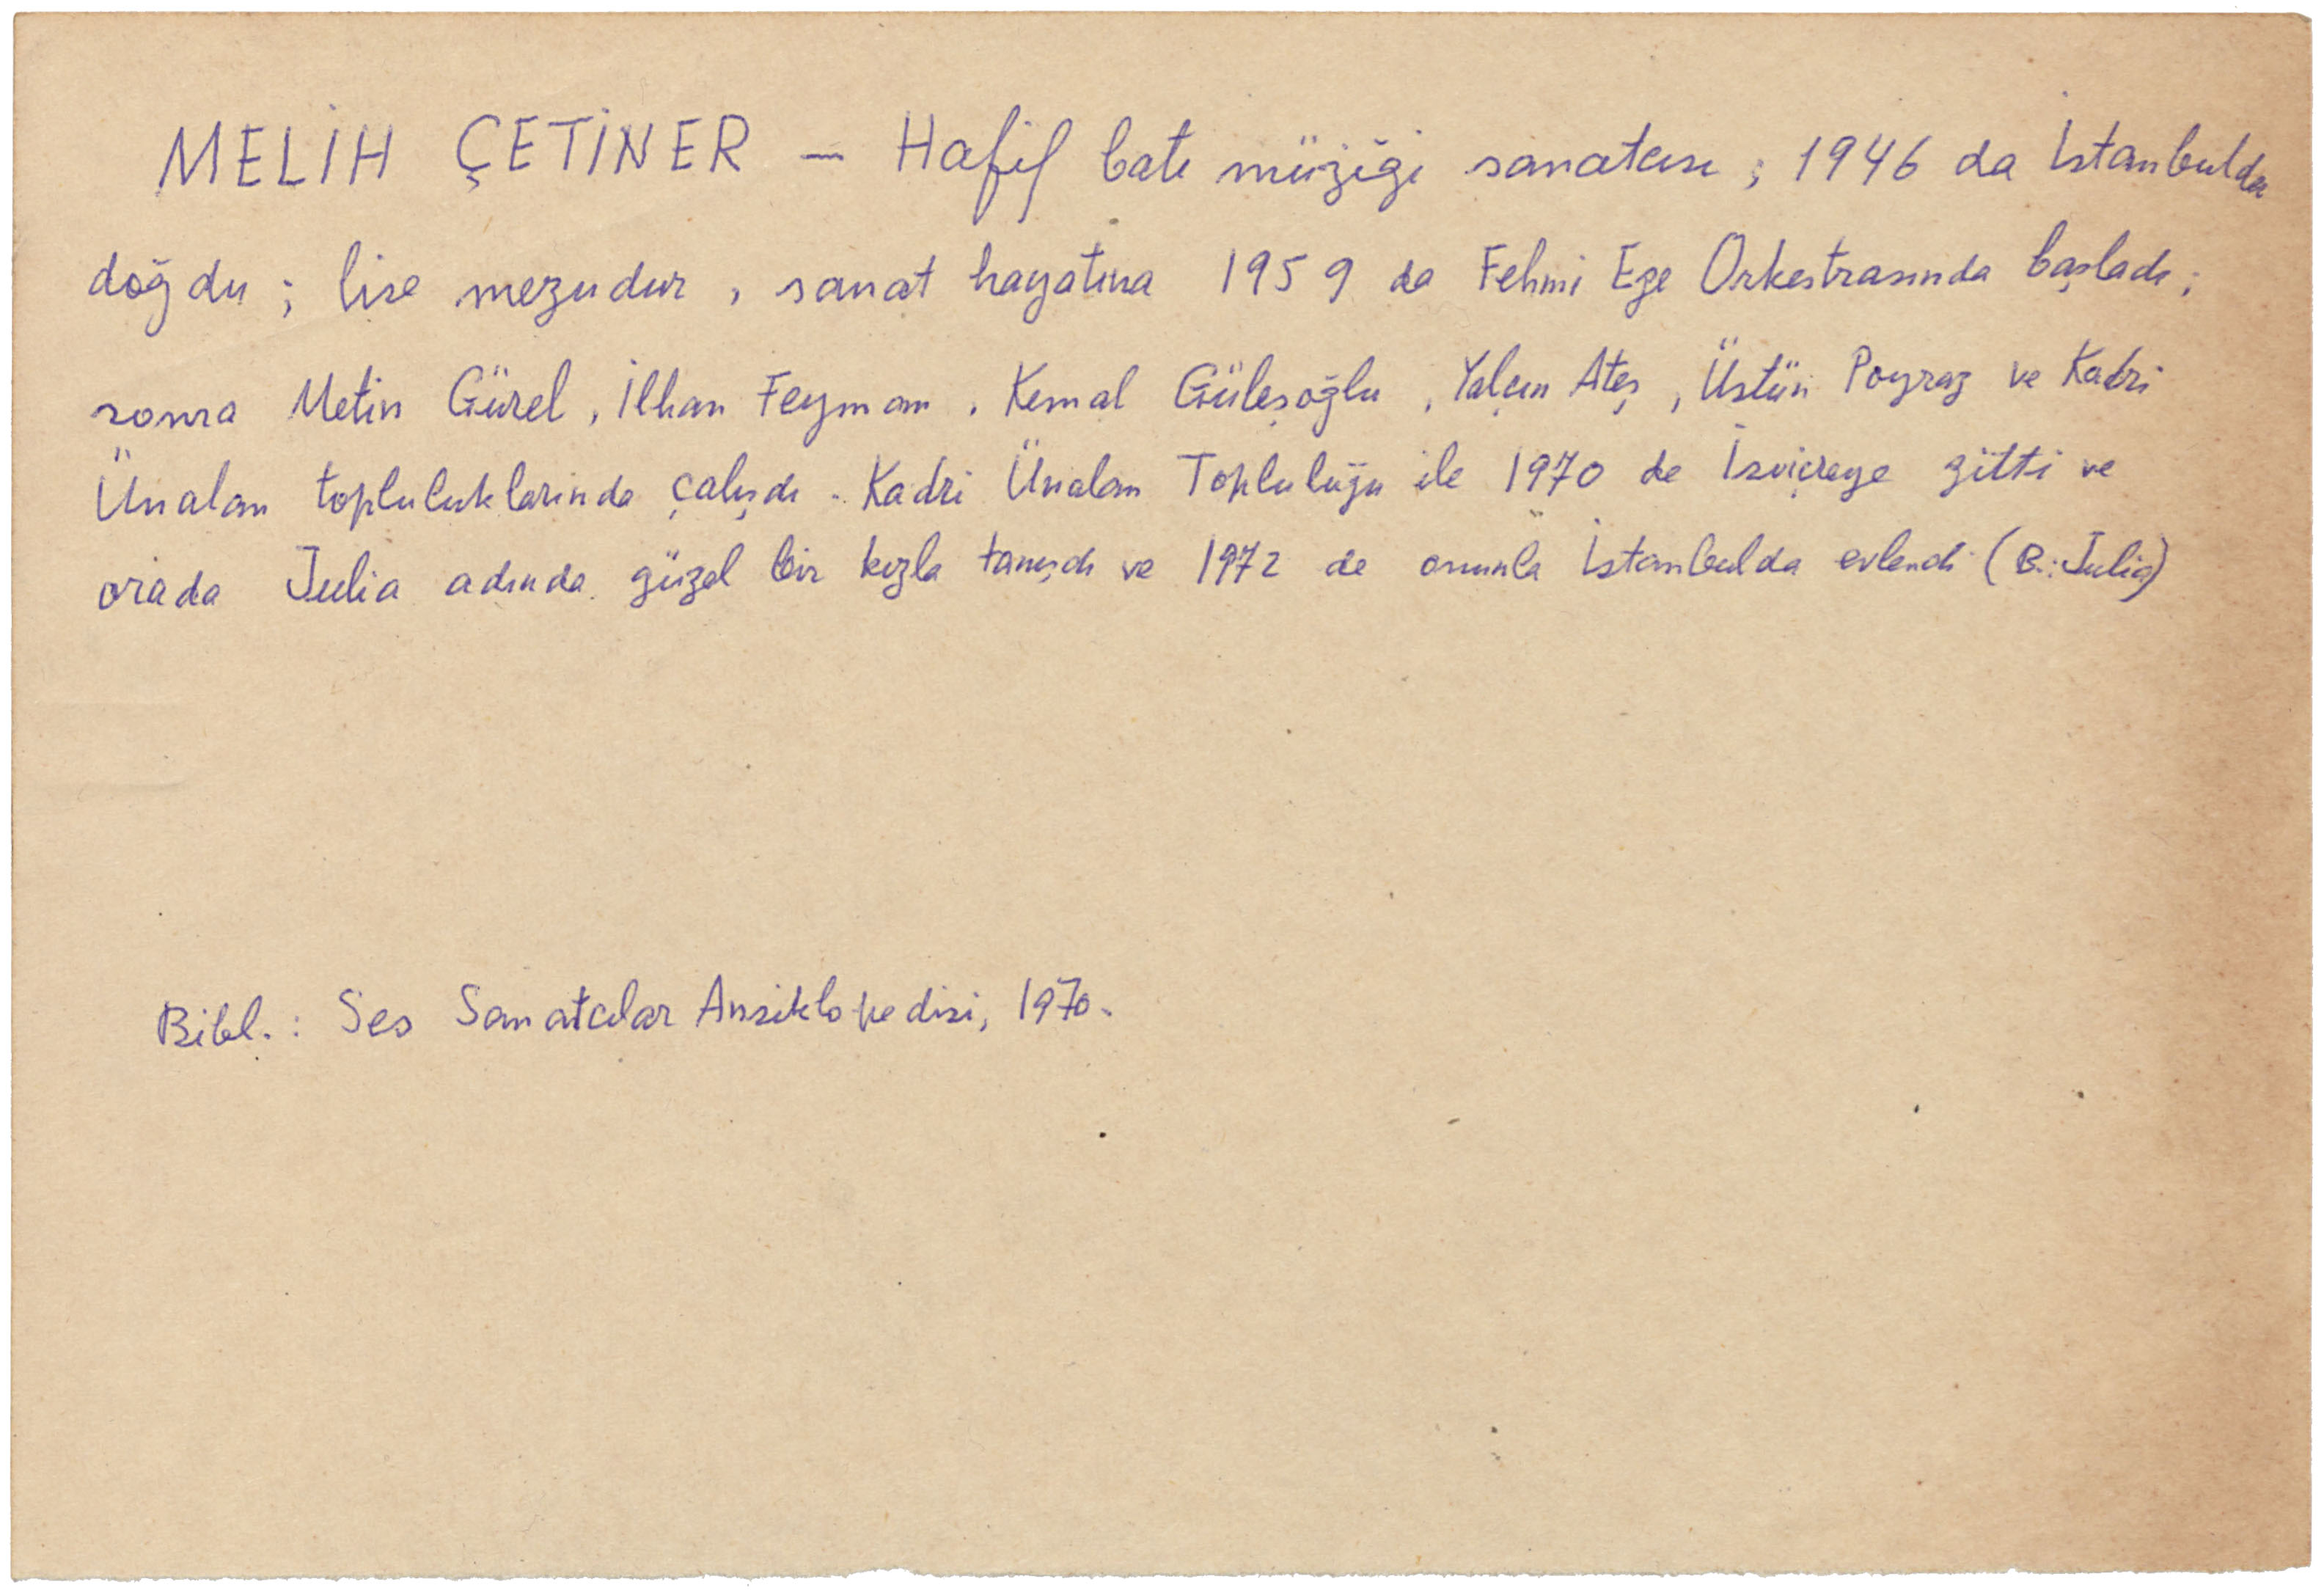 MELİH ÇETİNER — Hafif batı müziği sanatcısı ; 1946 da İstanbulda
doğdu ; lise mezudur , sanat hayatına 1959 da Fehmi Ege Orkestrasında başladı ;
sonra Metin Gürel , İlhan Feyman , Kemal Güleşoğlu , Yalçın Ateş , Üstün Poyraz ve Kadri
Ünalan topluluklarında çalışdı . Kadri Ünalan Topluluğu ile 1970 de İsviçreye gitti ve
orada Julia adında güzel bir kızla tanışdı ve 1972 de onunla İstanbulda evlendi (B.: Julia)
Bibl. : Ses Sanatcılar Ansiklopedisi, 1970.